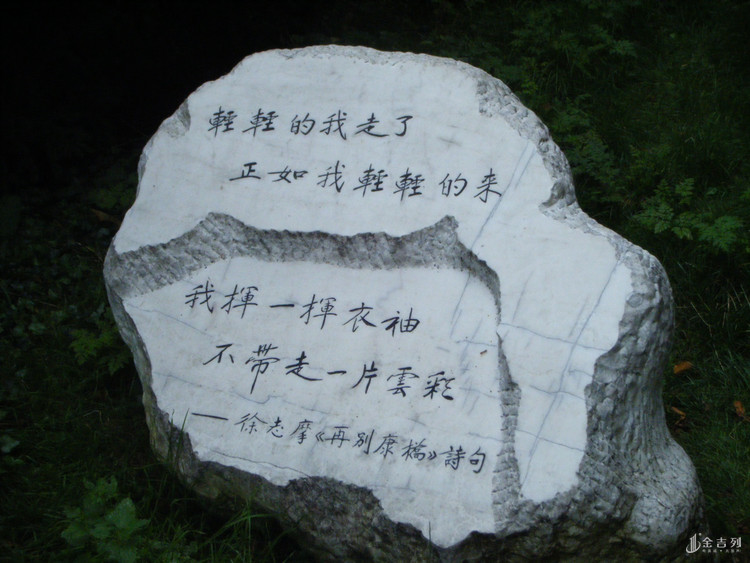 輕輕的我走了
正如我輕輕的来
我揮一揮衣袖
不帶走一片雲彩
——徐志摩《再别康橋》詩句
金吉列